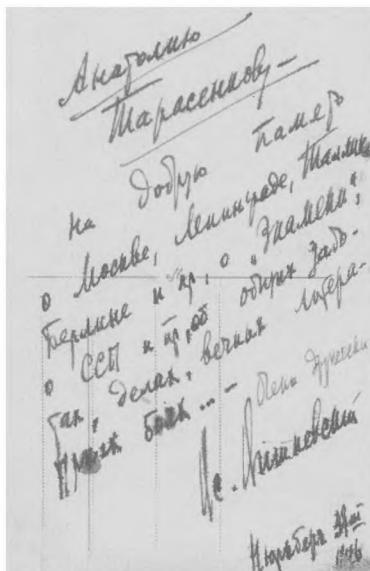 Анатолию
Тарасенкову —
на добрую память
о Москве, Ленинграде, Таллине
Берлине и пр., о „Знамени“,
о ССП и пр., об общих забо-
тах, делах, вечных литера-
турных боях... —
дружески
Вс. Вишневский
Нюрнберг
1946